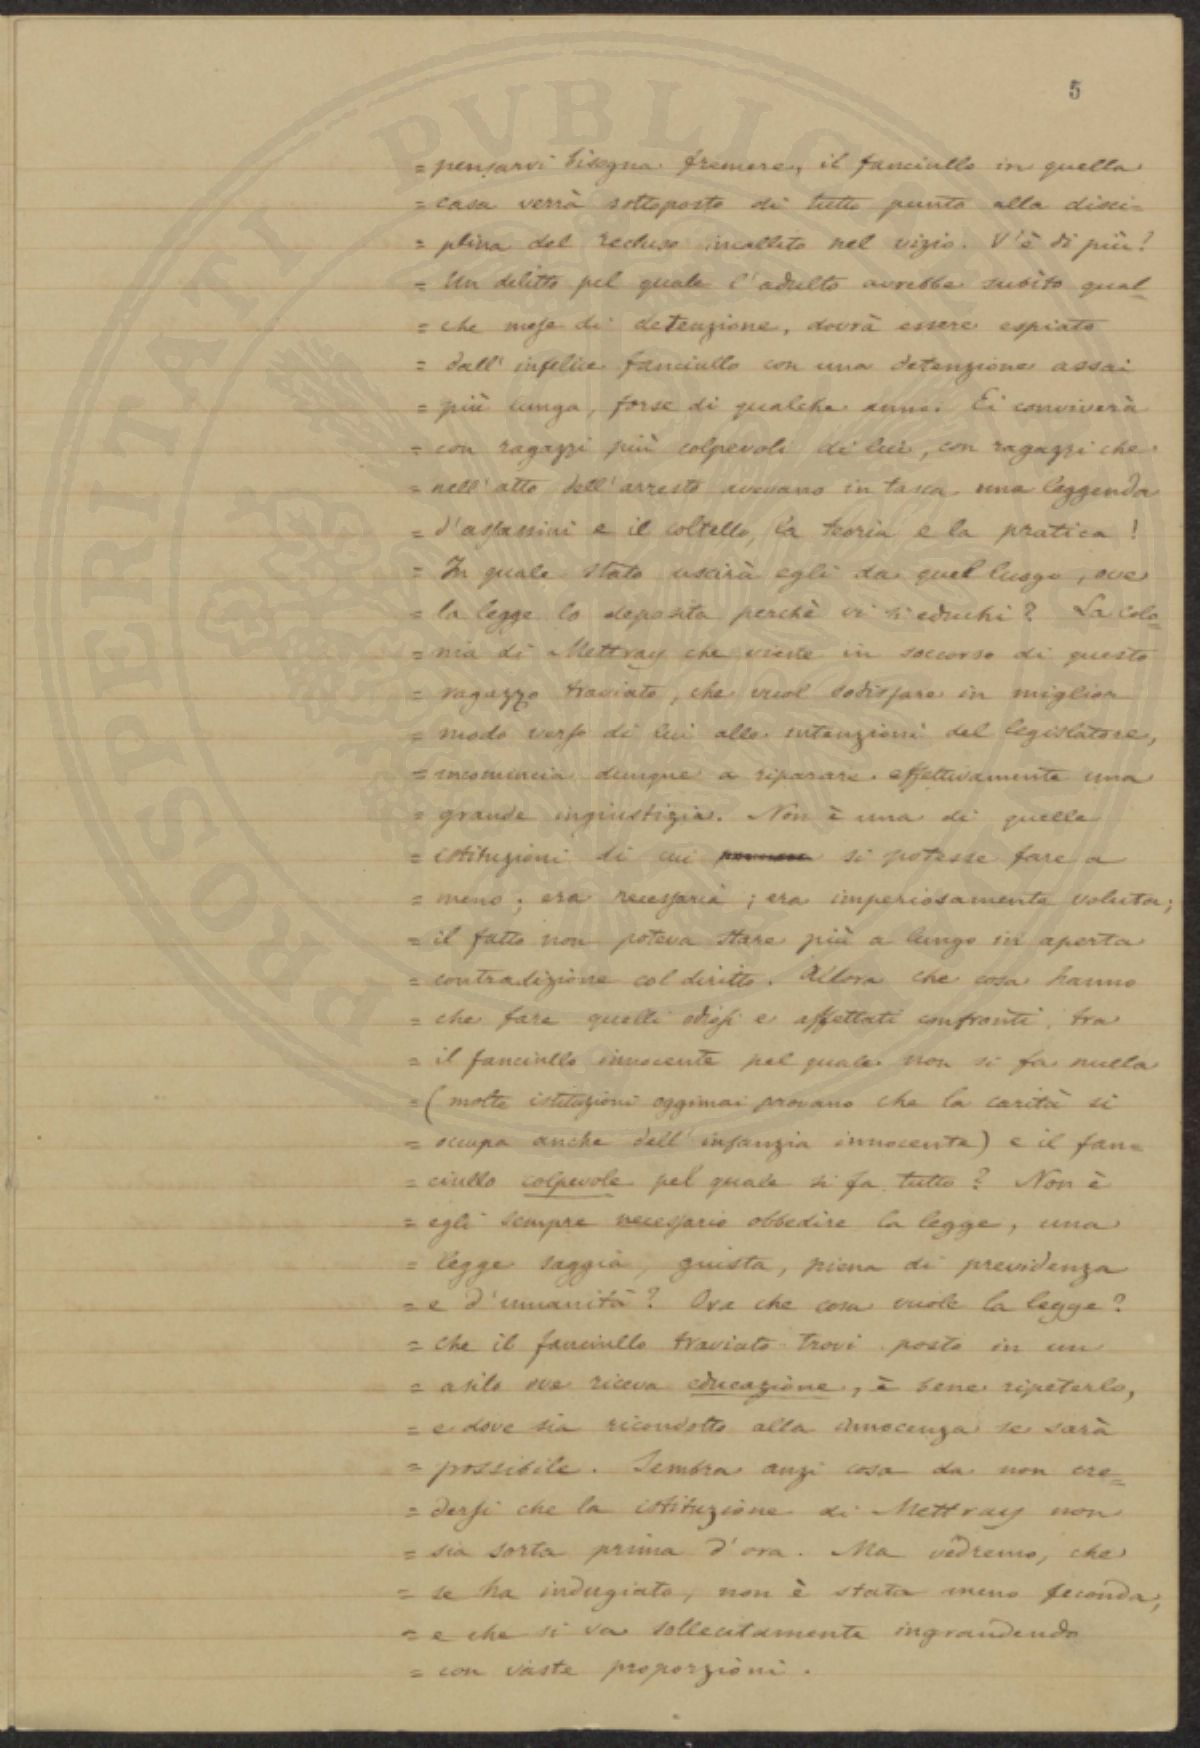 5
= pensarvi bisogna fremere, il fanciullo in quella
= casa verrà sottoposto di tutto punto alla disci=
= plina del recluso incallito nel vizio. V'è di più!
= Un delitto pel quale l'adulto avrebbe subìto qual=
= che mese di detenzione, dovrà essere espiato
= dall'infelice fanciullo con una detenzione assai
= più lunga, forse di qualche anno. Ei conviverà
= con ragazzi più colpevoli di lui, con ragazzi che
= nell'atto dell'arresto avevano in tasca una leggenda
= d'assassini e il coltello, la teoria e la pratica!
= In quale stato uscirà egli da quel luogo, ove
= la legge lo deposita perchè vi si educhi? La colo=
= nia di Mettray che viene in soccorso di questo
= ragazzo traviato, che vuol sodisfare in miglior
= modo verso di lui alle intenzioni del legislatore,
= incomincia dunque a riparare effettivamente una
= grande ingiustizia. Non è una di quelle
= istituzioni di cui si potesse fare a
= meno; era necessaria; era imperiosamente voluta;
= il fatto non poteva stare più a lungo in aperta
= contradizione col diritto. Allora che cosa hanno
= che fare quelli odiosi e affettati confronti tra
= il fanciullo innocente pel quale non si fa nulla
= (molte istituzioni oggimai provano che la carità si
= occupa anche dell'infanzia innocente) e il fan=
= ciullo colpevole pel quale si fa tutto? Non è
= egli sempre necessario obbedire la legge, una
= legge saggia, giusta, piena di previdenza
= e d'umanità? Ora che cosa vuole la legge?
= che il fanciullo traviato trovi posto in un
= asilo ove riceva educazione, è bene ripeterlo,
= e dove sia ricondotto alla innocenza se sarà
= possibile. Sembra anzi cosa da non cre=
= dersi che la istituzione di Mettray non
= sia sorta prima d'ora. Ma vedremo, che
= se ha indugiato, non è stata meno feconda;
= e che si va sollecitamente ingrandendo
= con vaste proporzioni.
PROSPERITATI PUBLICAE